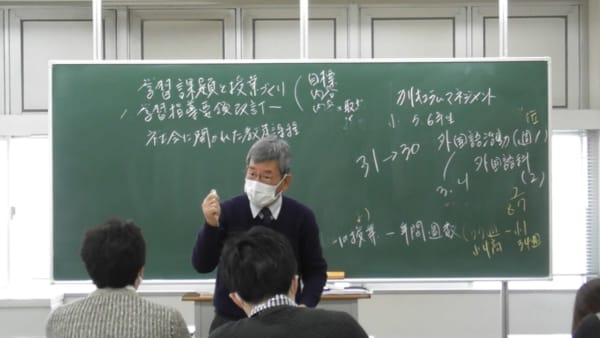 学習課題と授業づくり
学習指導要領改訂ー
社会に開かれた教育課程
目標
内容
内容の取扱い
カリキュラムマネジメント
小 5.6年生
31→30
外国語活動(週1)
外国語科
3.4
(2)
授業 ー 年間週数
34週